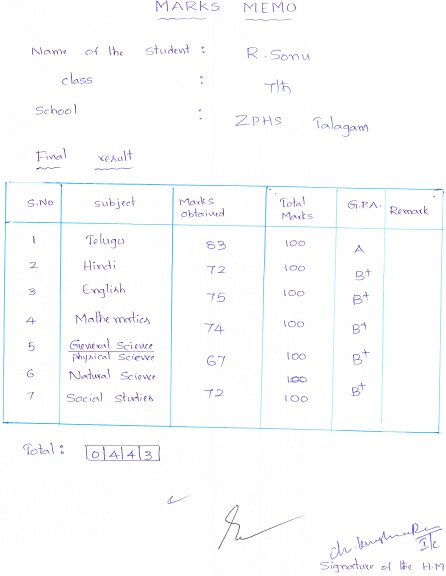 MARKS MEMO
Name of the student : R. Sonu
class : 7th
School : ZPHS Talagam
Final result
S.No subject Marks obtained Total Marks G.P.A. Remark
1 Telugu 83 100 A
2 Hindi 72 100 B+
3 English 75 100 B+
4 Mathematics 74 100 B+
5 General Science / physical Science 67 100 B+
6 Natural Science 100
7 Social studies 72 100 B+
Total : 0443
I/c
Signature of the H.M